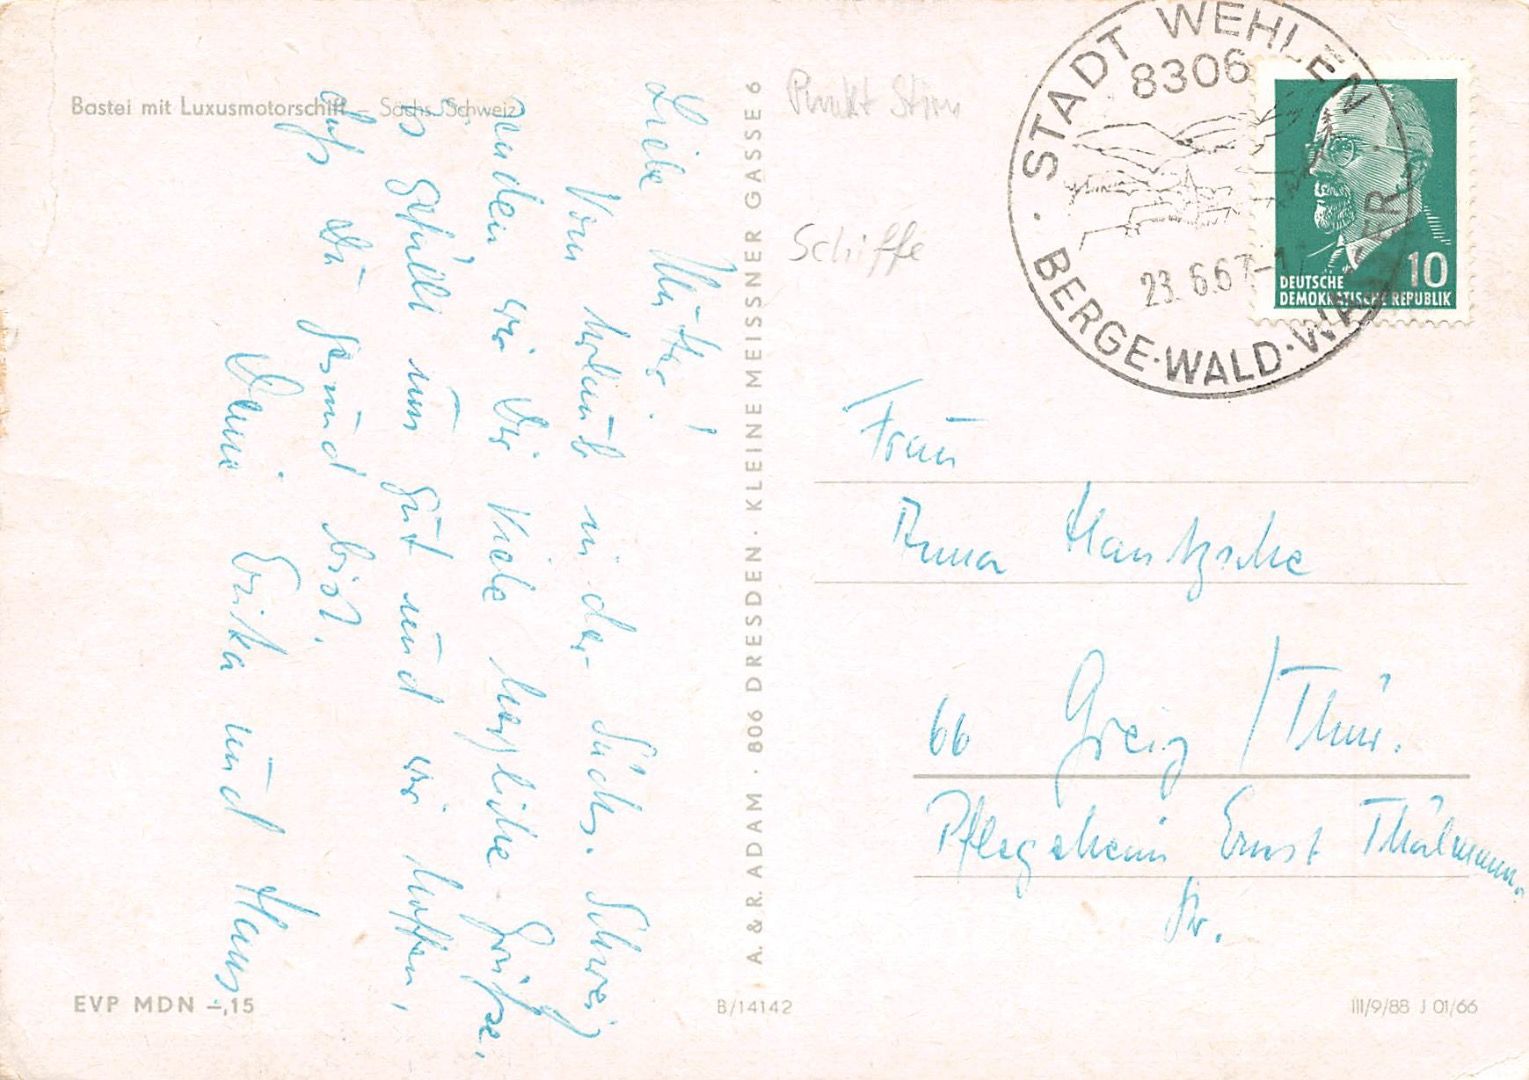 Bastei mit Luxusmotorschiff – Sächs. Schweiz
Liebe Mutter!
Vom Urlaub in der Sächs. Schweiz
senden wir Dir viele herzliche Grüße,
es gefällt uns gut und wir hoffen,
daß Du gesund bist.
Deine Erika und Hans
EVP MDN –,15
A. & R. ADAM · 806 DRESDEN · KLEINE MEISSNER GASSE 6
B/14142
Punkt Stirn
Schiffe
STADT WEHLEN
8306
23.6.67-1
BERGE·WALD·WASSER
10
DEUTSCHE
DEMOKRATISCHE REPUBLIK
Frau
Anna Hantzsche
66 Greiz / Thür.
Pflegeheim Ernst Thälmann-
Str.
III/9/88 J 01/66